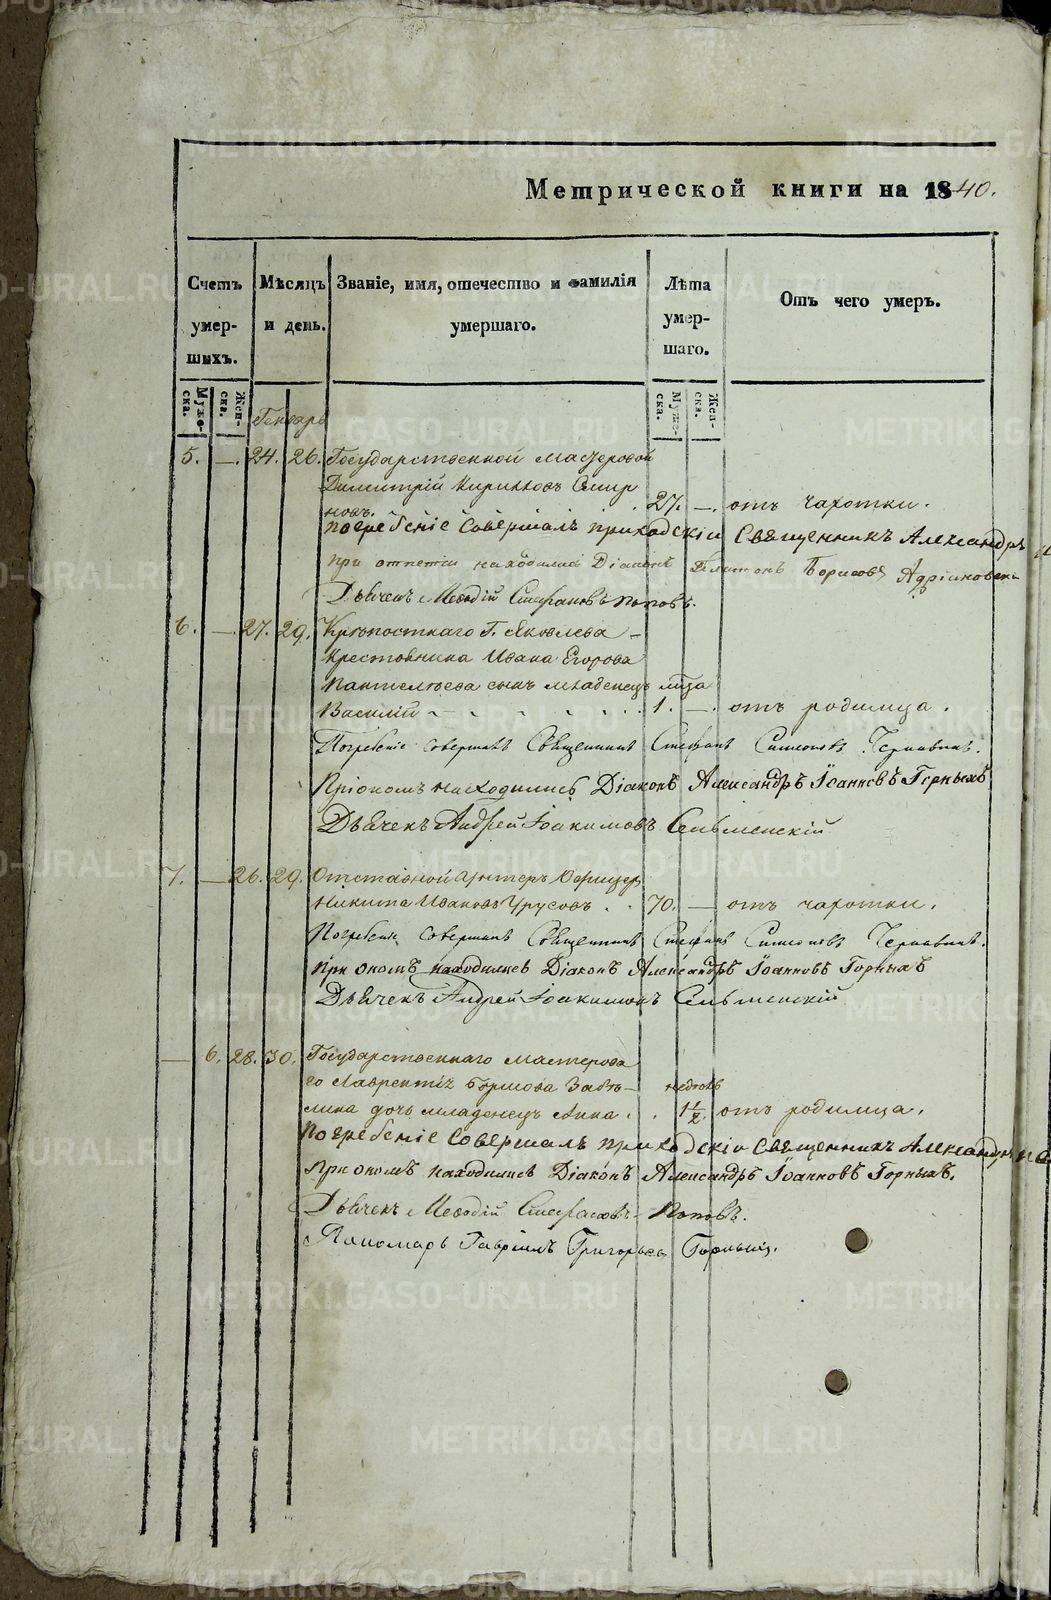 Метрической книги на 1840.
Счетъ умер- шихъ.
Мѣсяцъ и день.
Званіе, имя, отечество и фамилія умершаго.
Лѣта умер- шаго.
Отъ чего умеръ.
Муже- ска. Жен- ска. Муже- ска. Жен- ска.
Генварь
5. — 24. 26. Государственной мастеровой
Димитрій Кириловъ Смир
новъ. 27. — отъ чахотки.
погребеніе совершалъ приходскій Священникъ Александръ
при отпетіи находились Діаконъ Платонъ Борисовъ
Дьячекъ Меѳодій Стефановъ Поповъ.
6. — 27. 29. Крѣпостнаго Г. Яковлева
крестьянина Ивана Егорова
Пантелѣева сынъ младенецъ
Василій 1. — отъ родимца.
Погребеніе совершалъ Священникъ Стефанъ Симеоновъ
При ономъ находились Діаконъ Александръ Іоанновъ Горныхъ
Дьячекъ Андрей Іоакимовъ Сельменскій
7. — 26. 29. Отставной Унтеръ Офицер
Никита Ивановъ Урусовъ. 70. — отъ чахотки.
Погребеніе совершалъ Священникъ Стефанъ Симеоновъ
При ономъ находились Діаконъ Александръ Іоанновъ Горныхъ
Дьячекъ Андрей Іоакимовъ Сельменскій
— 6. 28. 30. Государственнаго мастерова
го Лаврентія
дочь младенецъ Анна. недель 1 1/2 отъ родимца.
Погребеніе совершалъ приходскій Священникъ Александръ
При ономъ находились Діаконъ Александръ Іоанновъ Горныхъ.
Дьячекъ Меѳодій Стефановъ Поповъ.
Пономарь Гавріилъ Григорьевъ Горныхъ.
METRIKI.GASO-URAL.RU